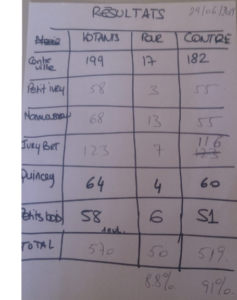 RÉSULTATS
VOTANTS POUR CONTRE
Centre ville 199 17 182
Petit ivry 58 3 55
68 13 55
Ivry Port 123 7 116
Quincey 64 4 60
Petits bob 58 6 51
TOTAL 570 50 519
8.8% 91%